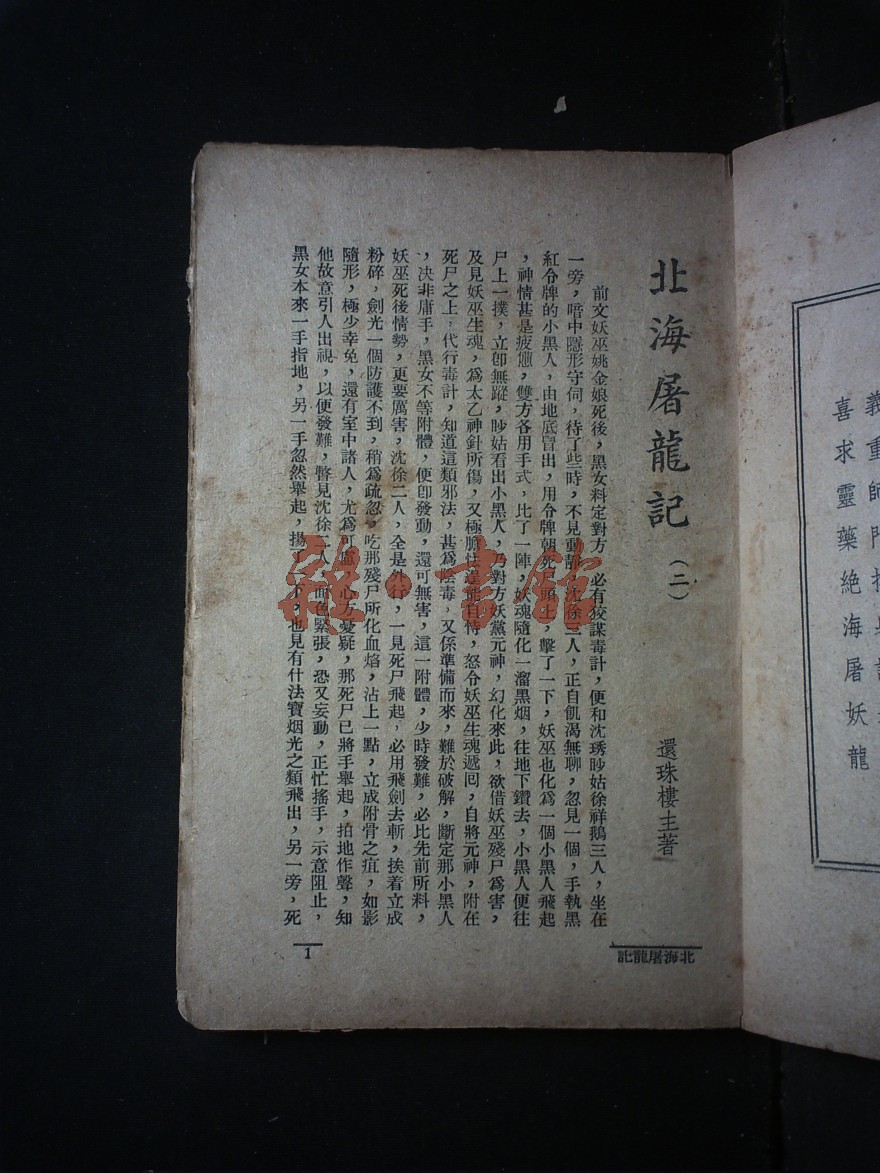 義重師門
喜求靈藥絕海屠妖龍
北海屠龍記（二）
還珠樓主著
前文妖巫姚金娘死後，黑女料定對方，必有狡謀毒計，便和沈琇眇姑徐祥鵝三人，坐在
一旁，暗中隱形守伺，待了些時，不見動靜，沈徐三人，正自飢渴無聊，忽見一個，手執黑
紅令牌的小黑人，由地底冒出，用令牌朝死尸頭上，擊了一下，妖巫也化為一個小黑人飛起
，神情甚是疲憊，雙方各用手式，比了一陣，妖魂隨化一溜黑烟，往地下鑽去，小黑人便往
尸上一撲，立卽無蹤，眇姑看出小黑人，乃對方妖黨元神，幻化來此，欲借妖巫殘尸為害，
及見妖巫生魂，為太乙神針所傷，又極膽怯，怒令妖巫生魂遞囘，自將元神，附在
死尸之上，代行毒計，知道這類邪法，甚為陰毒，又係準備而來，難於破解，斷定那小黑人
，决非庸手，黑女不等附體，便卽發動，還可無害，這一附體，少時發難，必比先前所料，
妖巫死後情勢，更要厲害，沈徐二人，全是外行，一見死尸飛起，必用飛劍去斬，挨着立成
粉碎，劍光一個防護不到，稍為疏忽，吃那殘尸所化血焰，沾上一點，立成附骨之疽，如影
隨形，極少幸免，還有室中諸人，尤為可慮，心方憂疑，那死尸已將手舉起，拍地作聲，知
他故意引人出視，以便發難，瞥見沈徐二人，面色緊張，恐又妄動，正忙搖手，示意阻止，
黑女本來一手指地，另一手忽然舉起，揚了一下，也見有什法寶烟光之類飛出，另一旁，死
北海屠龍記
1
雜·書館